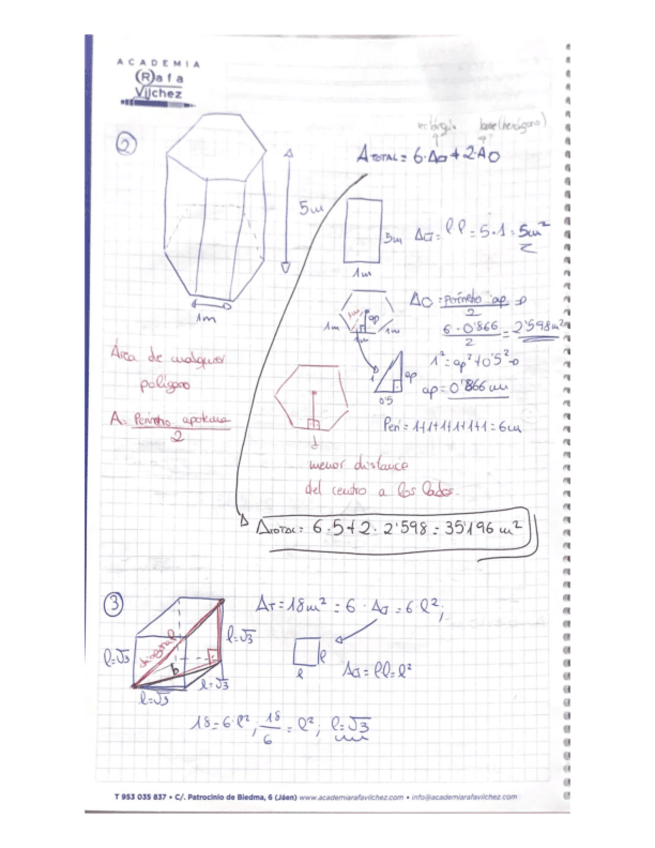 ACADEMIA
Rafa
Vílchez
rectángulo base (hexágono)
2
A TOTAL = 6·A▭ + 2·A⬡
5m
5m
A▭ = l·l = 5·1 = 5m²
1m
1m
A⬡ = Perímetro·ap / 2 →
1m
1m
ap
1m
1m
6·0'866 / 2 = 2'598m²
1² = ap² + 0'5² →
1
ap
0'5
ap = 0'866 m
Área de cualquier
polígono
A = Perímetro·apotema / 2
Peri = 1+1+1+1+1+1 = 6m
menor distancia
del centro a los lados.
A TOTAL = 6·5 + 2·2'598 = 35'196 m²
3
A T = 18m² = 6·A▭ = 6·l²;
l=√3
l=√3
diagonal
b
l=√3
l=√3
l
l
A▭ = l·l = l²
18 = 6·l²; 18/6 = l²; l=√3
T 953 035 837 • C/. Patrocinio de Biedma, 6 (Jáen) www.academiarafavilchez.com • info@academiarafavilchez.com